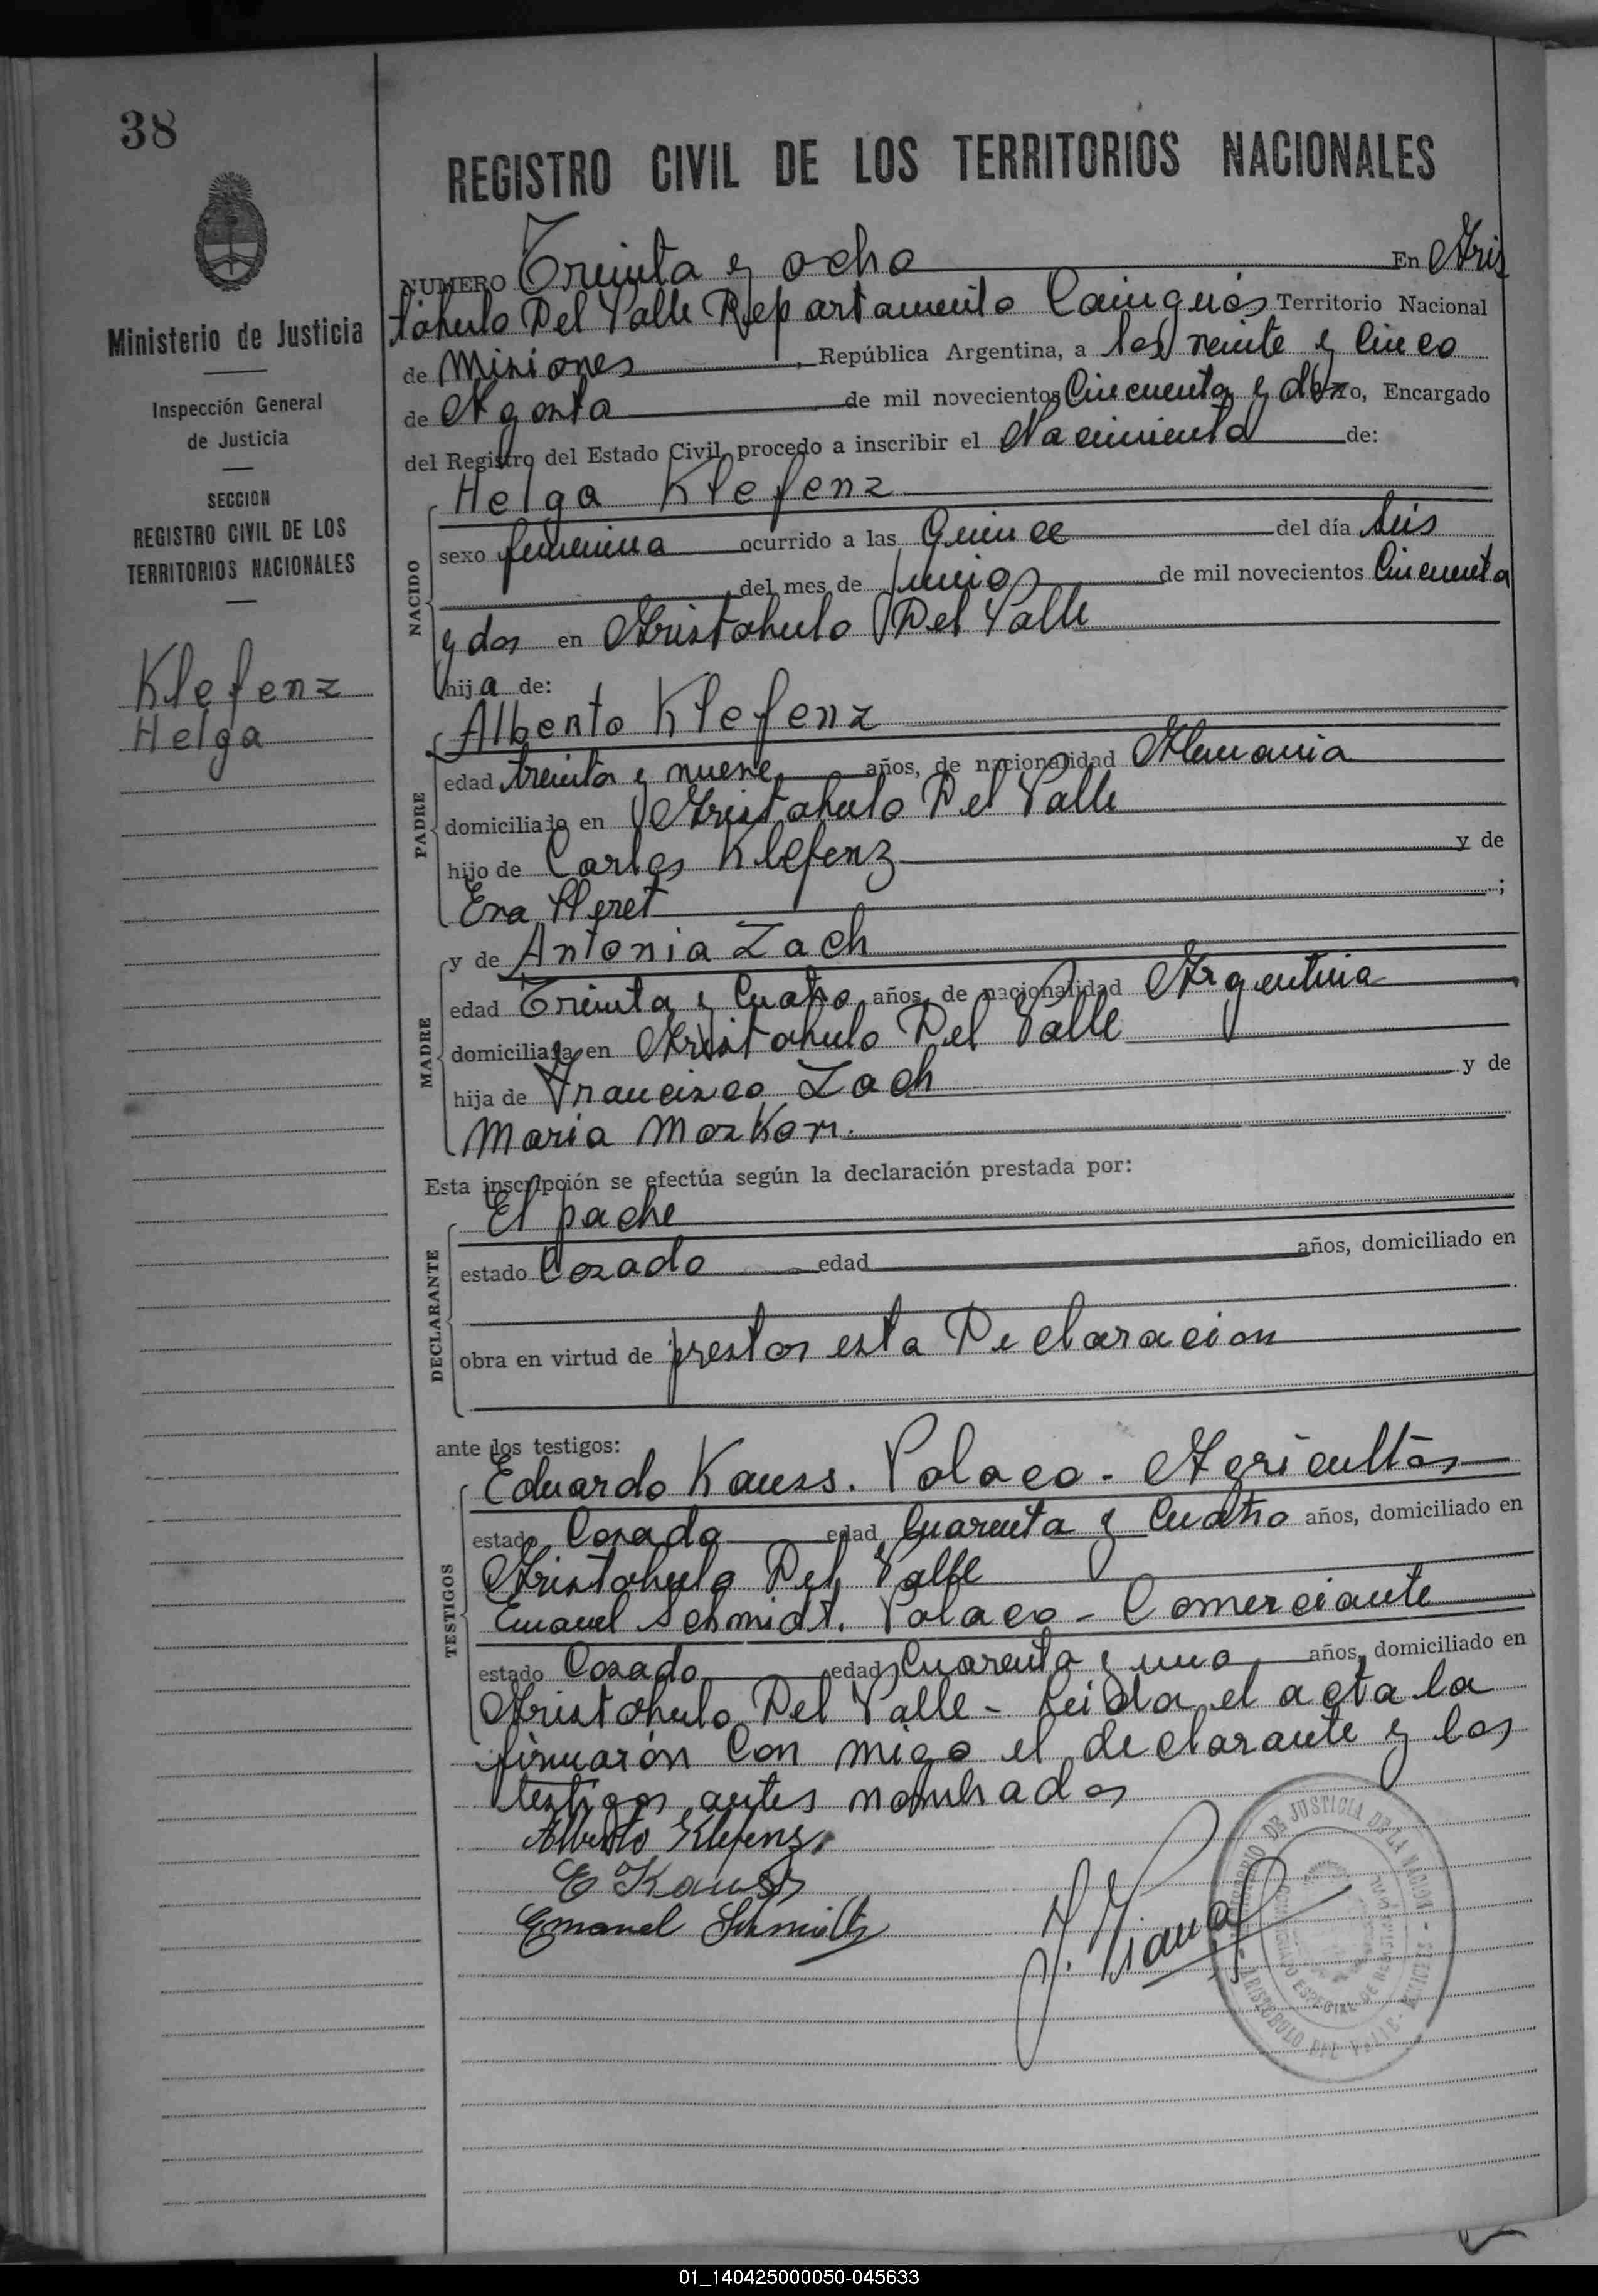 38
REGISTRO CIVIL DE LOS TERRITORIOS NACIONALES
Ministerio de Justicia
Inspección General
de Justicia
SECCION
REGISTRO CIVIL DE LOS
TERRITORIOS NACIONALES
Klefenz
Helga
NUMERO Treinta y ocho En Aris
tóbulo Del Valle Departamento Cainguás Territorio Nacional
de Misiones, República Argentina, a los veinte y cinco
de Agosto de mil novecientos Cincuenta y dos yo, Encargado
del Registro del Estado Civil, procedo a inscribir el Nacimiento de:
NACIDO
Helga Klefenz
sexo femenina ocurrido a las Quince del día seis
del mes de Junio de mil novecientos Cincuenta
y dos en Aristobulo Del Valle
hija de:
PADRE
Alberto Klefenz
edad treinta y nueve años, de nacionalidad Alemania
domiciliado en Aristobulo Del Valle
hijo de Carlos Klefenz y de
Eva ;
MADRE
y de Antonia Zach
edad Treinta y Cuatro años, de nacionalidad Argentina
domiciliada en Aristobulo Del Valle
hija de Francisco Zach y de
Maria
Esta inscripción se efectúa según la declaración prestada por:
DECLARANTE
El padre
estado Cozado edad años, domiciliado en
obra en virtud de prestar esta Declaracion
ante los testigos:
TESTIGOS
Eduardo Kauss. Polaco - Agricultor
estado Cozado edad Cuarenta y Cuatro años, domiciliado en
Aristobulo Del Valle
Emanuel Schmidt. Polaco - Comerciante
estado Cozado edad Cuarenta y uno años, domiciliado en
Aristobulo Del Valle - Leida el acta la
firmarón Con migo el declarante y los
testigos antes nombrados
Alberto Klefenz
E Kauss
Emanuel
MINISTERIO DE JUSTICIA DE LA NACION
ARISTOBULO DEL VALLE - MISIONES
01_140425000050-045633